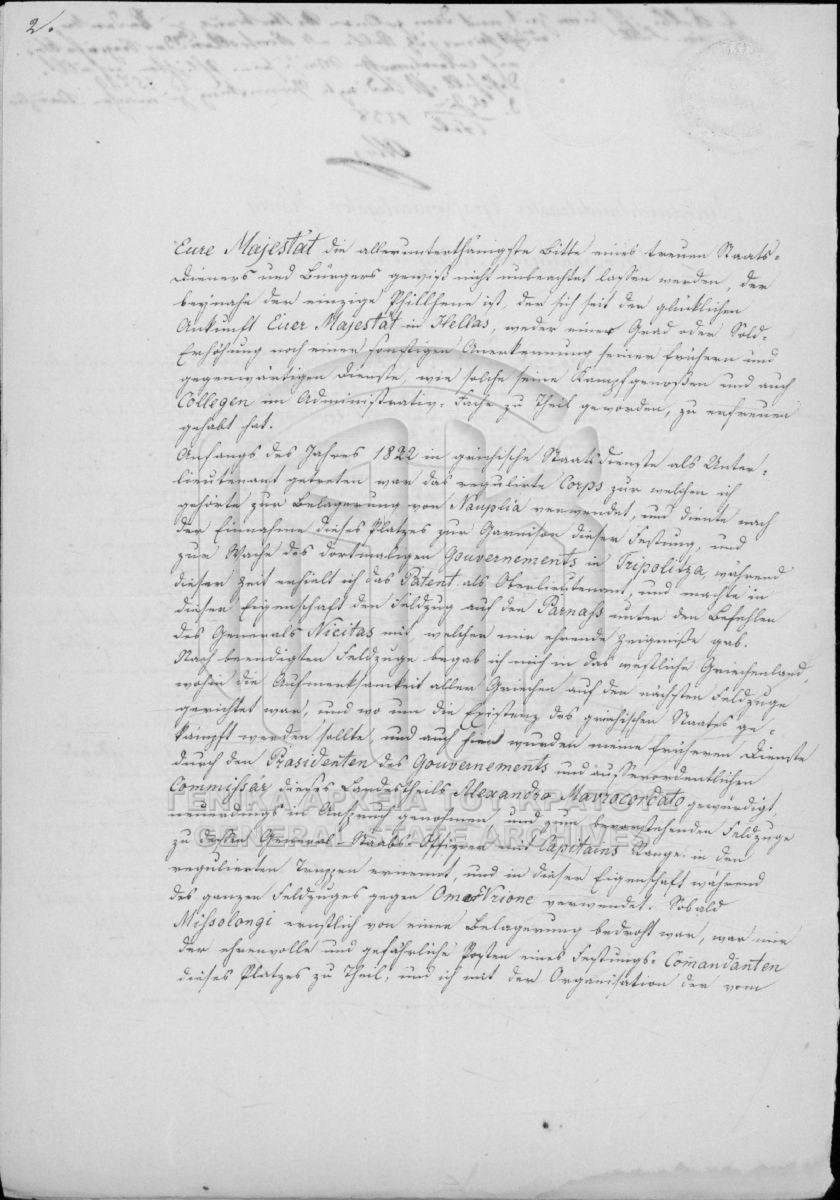 2.
Eure Majestät die allerunterthänigste Bitte eines treuen Staats-
Dieners und Bürgers gewiß nicht unbeachtet lassen werden, der
beynahe der einzige Phillhene ist, der sich seit der glücklichen
Ankunft Eurer Majestät in Hellas, weder einer Grad oder Sold-
Erhöhung noch einer sonstigen Anerkennung seiner frühern und
gegenwärtigen Dienste, wie solche seine Kampfgenoßen und auch
Collegen im Administrativ-Fache zu Theil geworden, zu erfreuen
gehabt hat.
Anfangs des Jahres 1822 in griechische Staatsdienste als Unter-
lieutenant getreten war das regulirte Corps zur welchen ich
gehörte zur Belagerung von Nauplia verwendet, und diente nach
der Einnahme dieses Platzes zur Garnison dieser Festung, und
zur Wache des dortmaligen Gouvernements in Tripolitza, während
dieser Zeit erhielt ich das Patent als Oberlieutenant, und machte in
dieser Eigenschaft den Feldzug auf den Parnass unter den Befehlen
des Generals Nicitas mit, welcher mir ehrende Zeigniße gab.
Nach beendigten Feldzuge begab ich mich in das westliche Griechenland,
wohin die Aufmerksamkeit aller Griechen auf den nächsten Feldzuge
gerichtet war, und wo um die Existenz des grichischen Staates ge-
kämpft werden sollte, und auch hier wurden meine früheren Dienste
durch den Präsidenten des Gouvernements und außerordentlichen
Commissär dieses Landestheils Alexandro Mavrocordato gewürdigt,
neuerdings in Anspruch genohmen, und zum bevorstehenden Feldzuge
zu General-Staabs Offizier mit Capitains Range in den
regulierten Truppen ernennt, und in dieser Eigenschaft während
des ganzen Feldzuges gegen Omer Vrione verwendet. Sobald
Missolongi ernstlich von einer Belagerung bedroht war, war mir
der ehrenvolle und gefährliche Posten eines Festungs-Comandanten
dieses Platzes zu Theil, und ich mit der Organisation der vom
ΓΕΝΙΚΑ ΑΡΧΕΙΑ ΤΟΥ ΚΡΑΤΟΥΣ
GENERAL STATE ARCHIVES